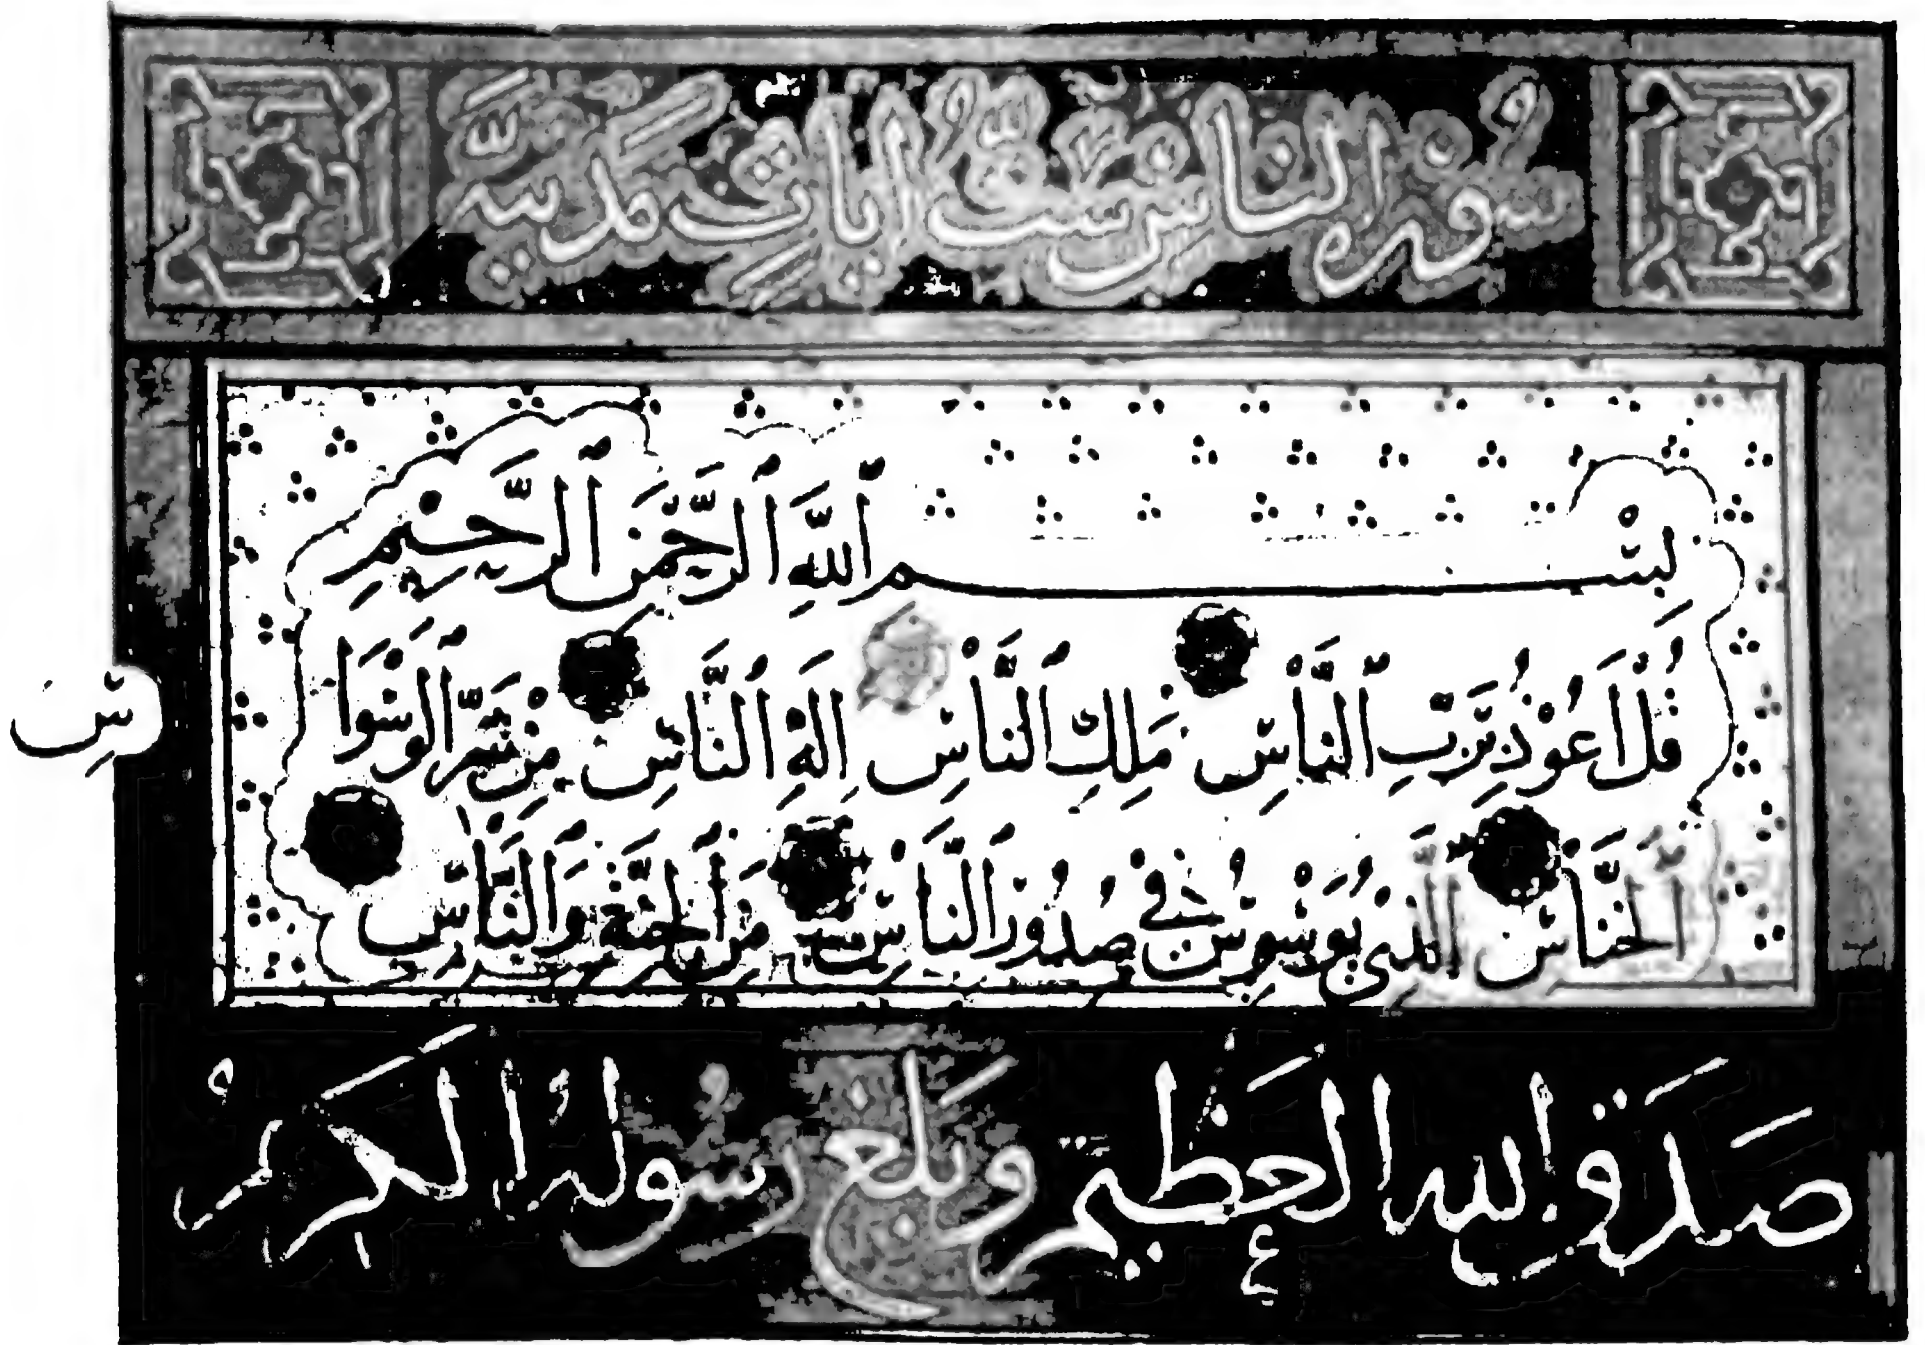 سُورَةُ النَّاسِ سِتُّ اٰيَاتٍ مَدَنِيَّة
بِسْمِ ٱللَّهِ ٱلرَّحْمَنِ ٱلرَّحِيمِ
قُلْ أَعُوذُ بِرَبِّ ٱلنَّاسِ مَلِكِ ٱلنَّاسِ إِلَهِ ٱلنَّاسِ مِنْ شَرِّ ٱلْوَسْوَا
سِ
ٱلْخَنَّاسِ ٱلَّذِي يُوَسْوِسُ فِي صُدُورِ ٱلنَّاسِ مِنَ ٱلْجِنَّةِ وَٱلنَّاسِ
صَدَقَ اللهُ العَظِيم وَبَلَّغَ رَسُولُهُ الكَرِيمُ